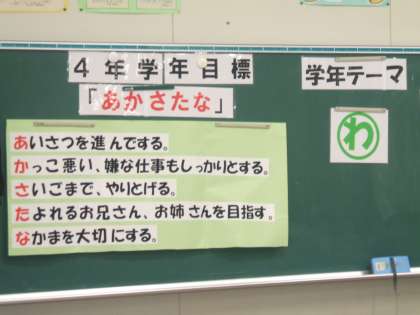 4年学年目標
「あかさたな」
あいさつを進んでする。
かっこ悪い、嫌な仕事もしっかりとする。
さいごまで、やりとげる。
たよれるお兄さん、お姉さんを目指す。
なかまを大切にする。
学年テーマ
わ